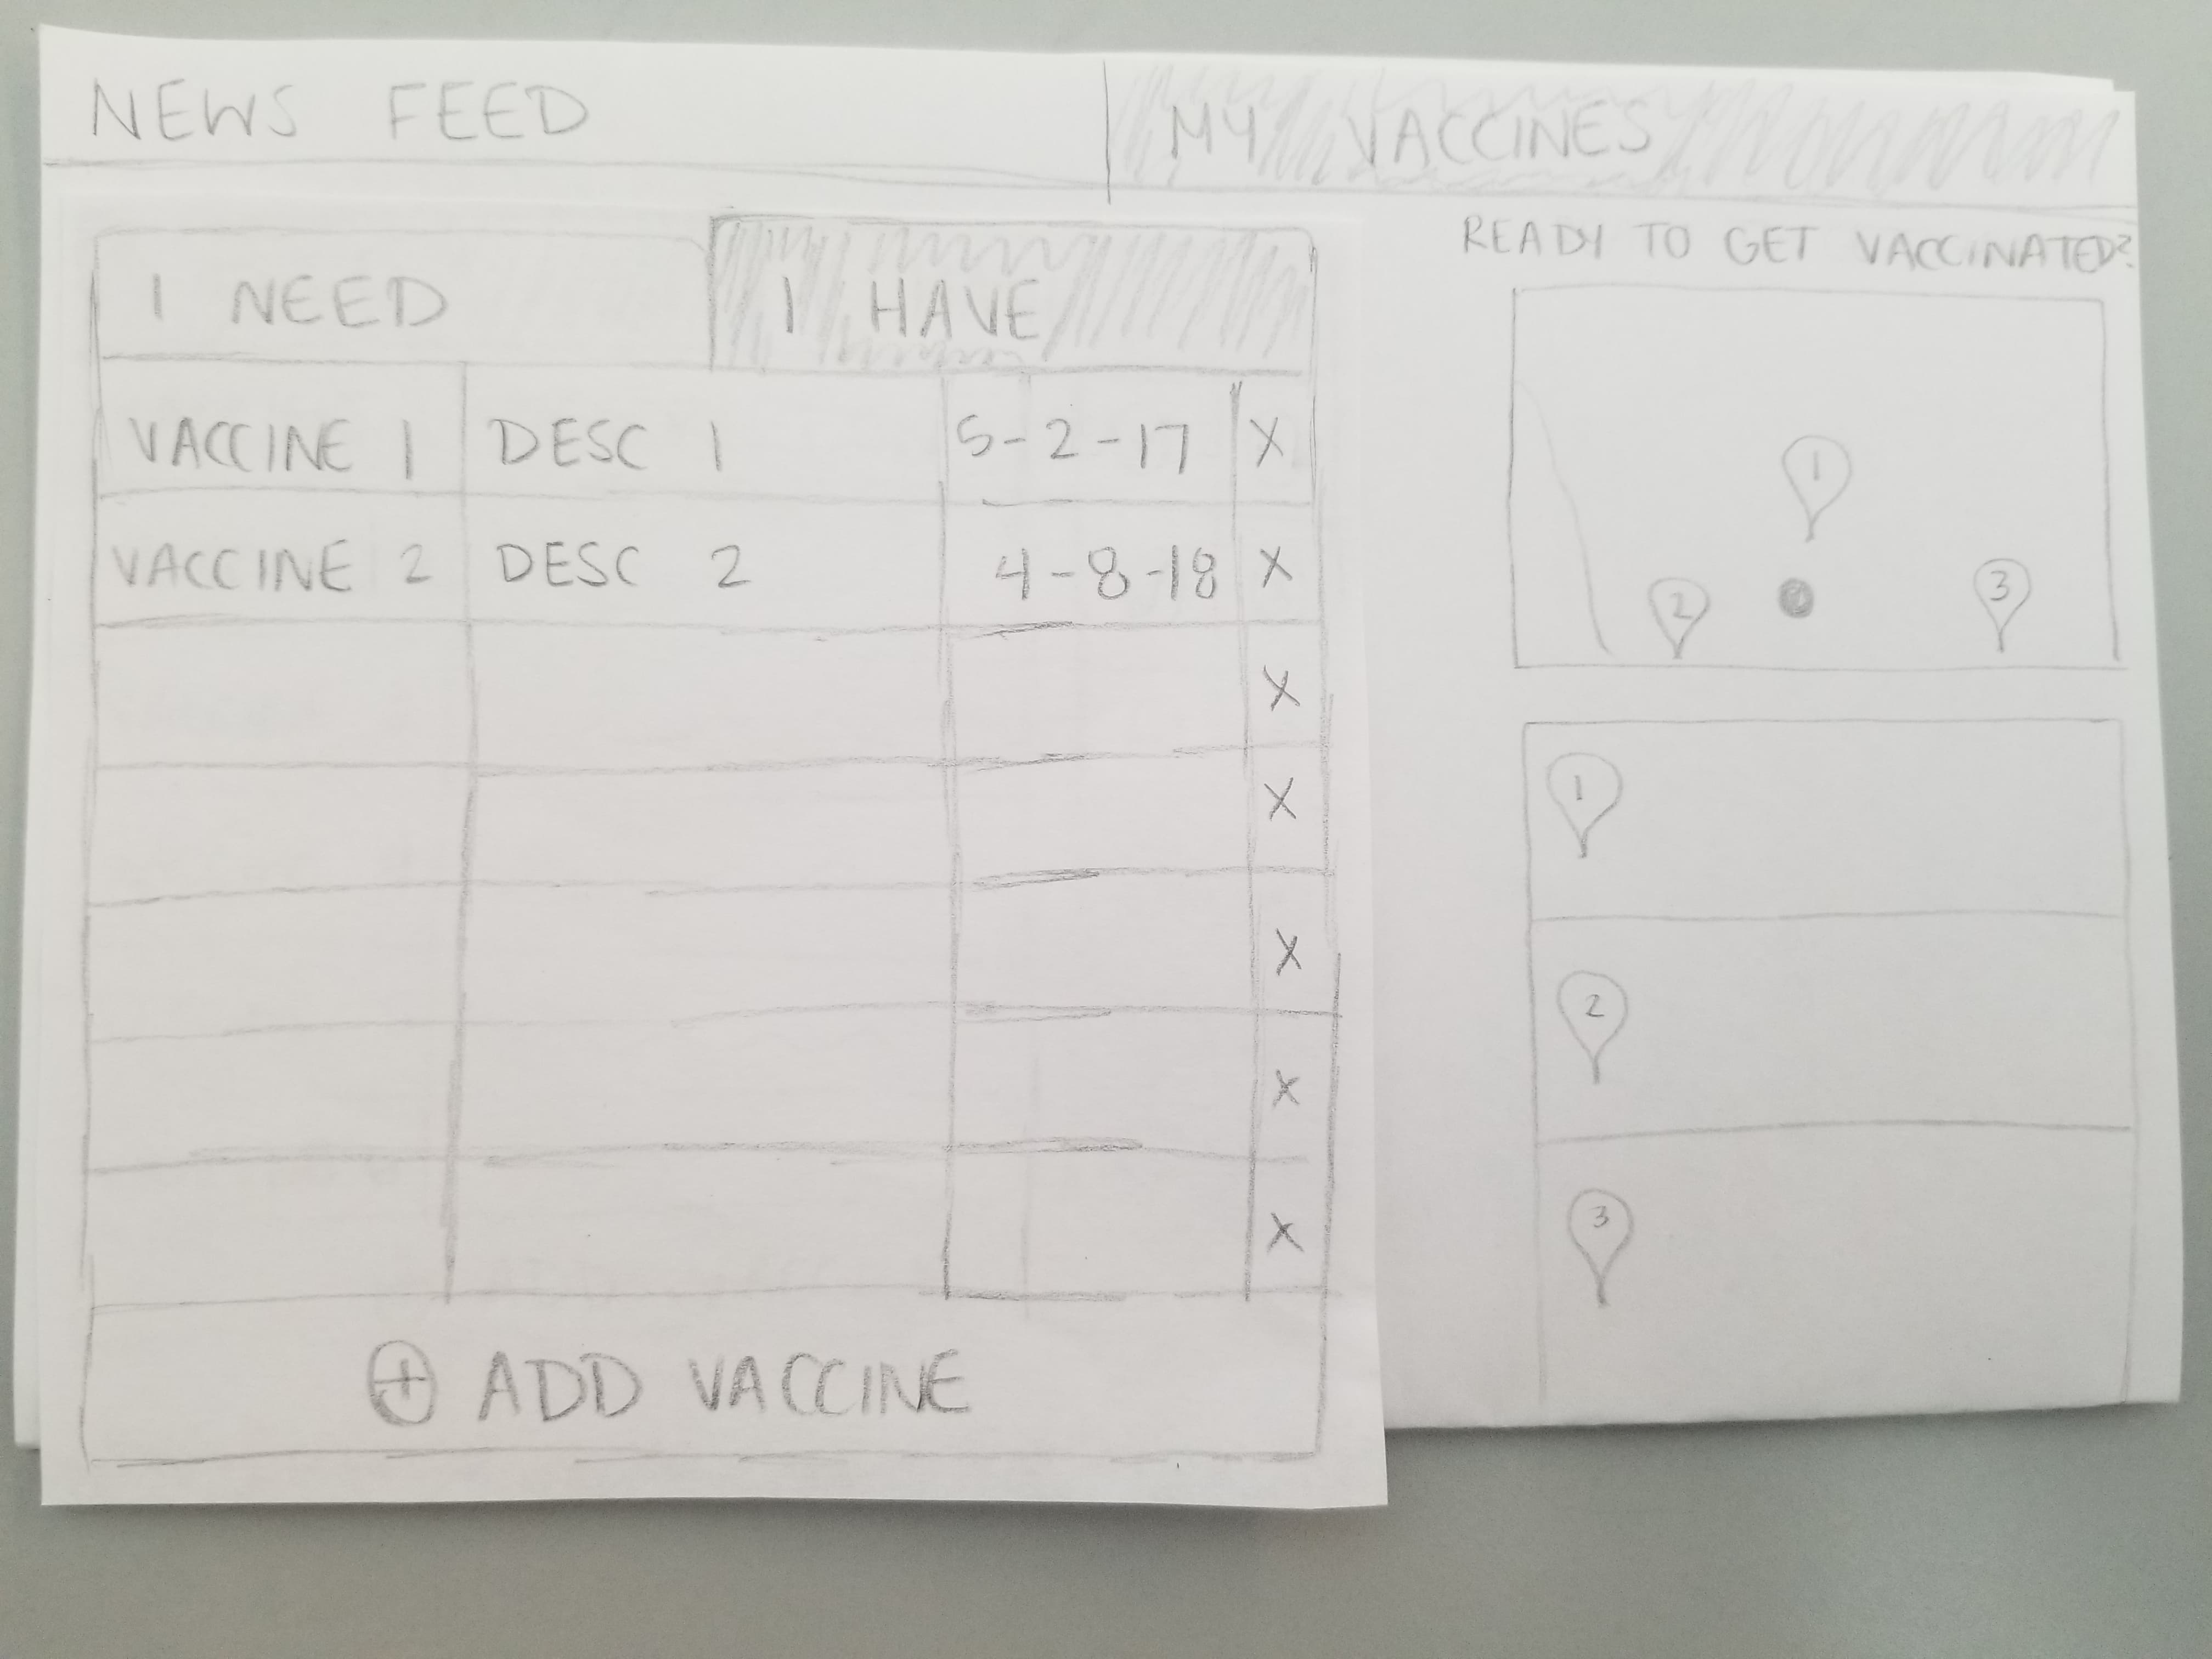 NEWS FEED
MY VACCINES
I NEED
I HAVE
VACCINE 1 DESC 1 5-2-17 X
VACCINE 2 DESC 2 4-8-18 X
X
X
X
X
X
+ ADD VACCINE
READY TO GET VACCINATED?
1
2
3
1
2
3